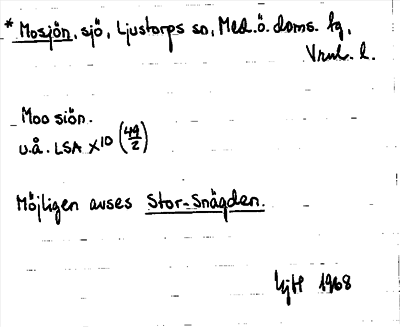 * Mosjön, sjö, Ljustorps sn, Med.ö. doms. fg,
Vrnl. l.
Moo siön.
u.å. LSA X¹⁰ (49/2)
Möjligen avses Stor-Snägden.
1968